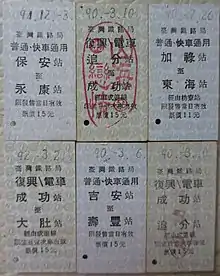 91.12.-3
臺灣鐵路局
普通·快車通用
保安站
至
永康站
限發售當日有效
票價15元
90.-3.10
臺灣鐵路局
復興\電車
追分站
至
成功站
經由成追線
票價15元
90.-3.26
臺灣鐵路局
普通·快車通用
加祿站
至
東海站
限發售當日有效
票價11元
92.-3.2
臺灣鐵路局
復興\電車
成功站
至
大肚站
票價15元
90.-3.6
臺灣鐵路局
普通·快車通用
吉安站
至
壽豐站
限發售當日有效
票價15元
臺灣鐵路局
復興\電車
成功站
至
追分站
票價15元